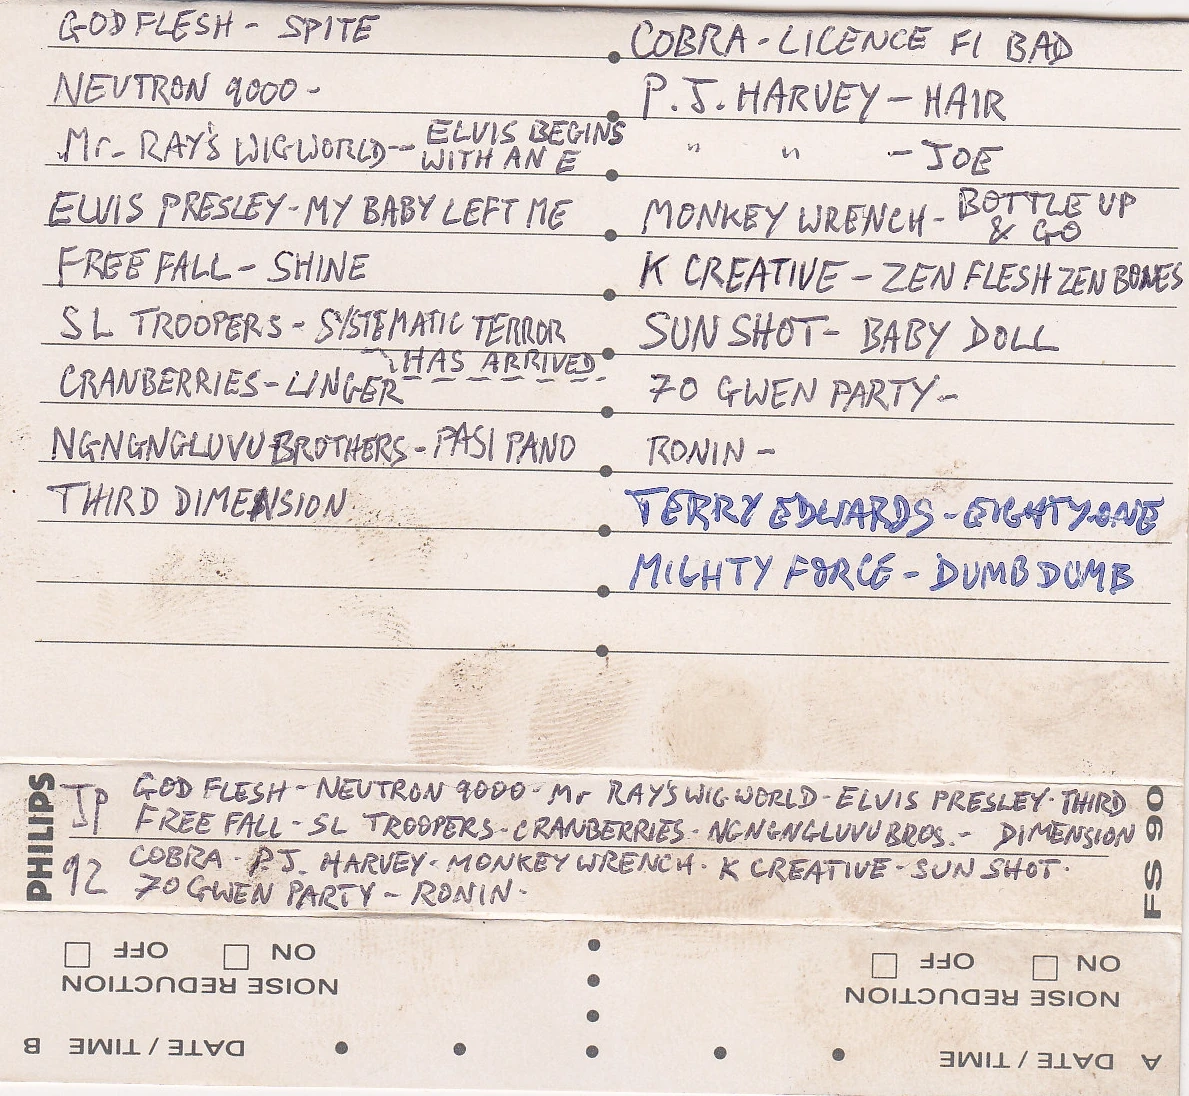 GODFLESH - SPITE
NEUTRON 9000 -
Mr. RAY'S WIGWORLD - ELVIS BEGINS
WITH AN E
ELVIS PRESLEY - MY BABY LEFT ME
FREE FALL - SHINE
SL TROOPERS - SYSTEMATIC TERROR
HAS ARRIVED
CRANBERRIES - LINGER
NGNGNGLUVU BROTHERS - PASI PANO
THIRD DIMENSION
COBRA - LICENCE FI BAD
P.J. HARVEY - HAIR
" " - JOE
MONKEY WRENCH - BOTTLE UP
& GO
K CREATIVE - ZEN FLESH ZEN BONES
SUN SHOT - BABY DOLL
70 GWEN PARTY -
RONIN -
TERRY EDWARDS - EIGHTY-ONE
MIGHTY FORCE - DUMB DUMB
PHILIPS
JP
92
GOD FLESH - NEUTRON 9000 - Mr RAY'S WIGWORLD - ELVIS PRESLEY - THIRD
FREE FALL - SL TROOPERS - CRANBERRIES - NGNGNGLUVU BROS. - DIMENSION
COBRA - P.J. HARVEY - MONKEY WRENCH - K CREATIVE - SUN SHOT -
70 GWEN PARTY - RONIN -
FS 90
A DATE / TIME
NOISE REDUCTION
ON OFF
B DATE / TIME
NOISE REDUCTION
ON OFF